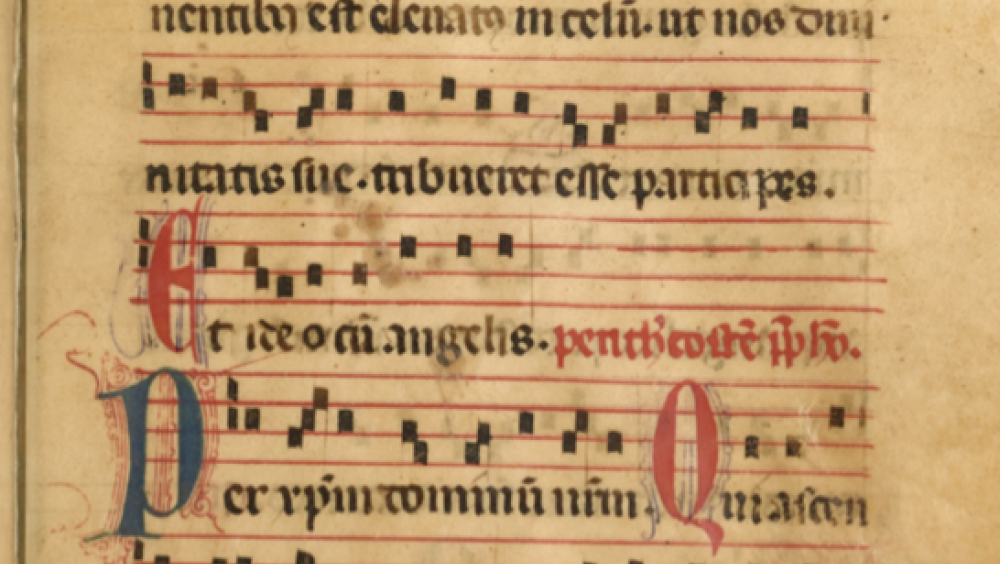 nentibꝫ est eleuatꝰ in celū. ut nos diui
nitatis sue. tribueret esse participes.
Et ideo cū angelis. penthecostē
Per xp̄m dominū nr̄m. Qui ascen